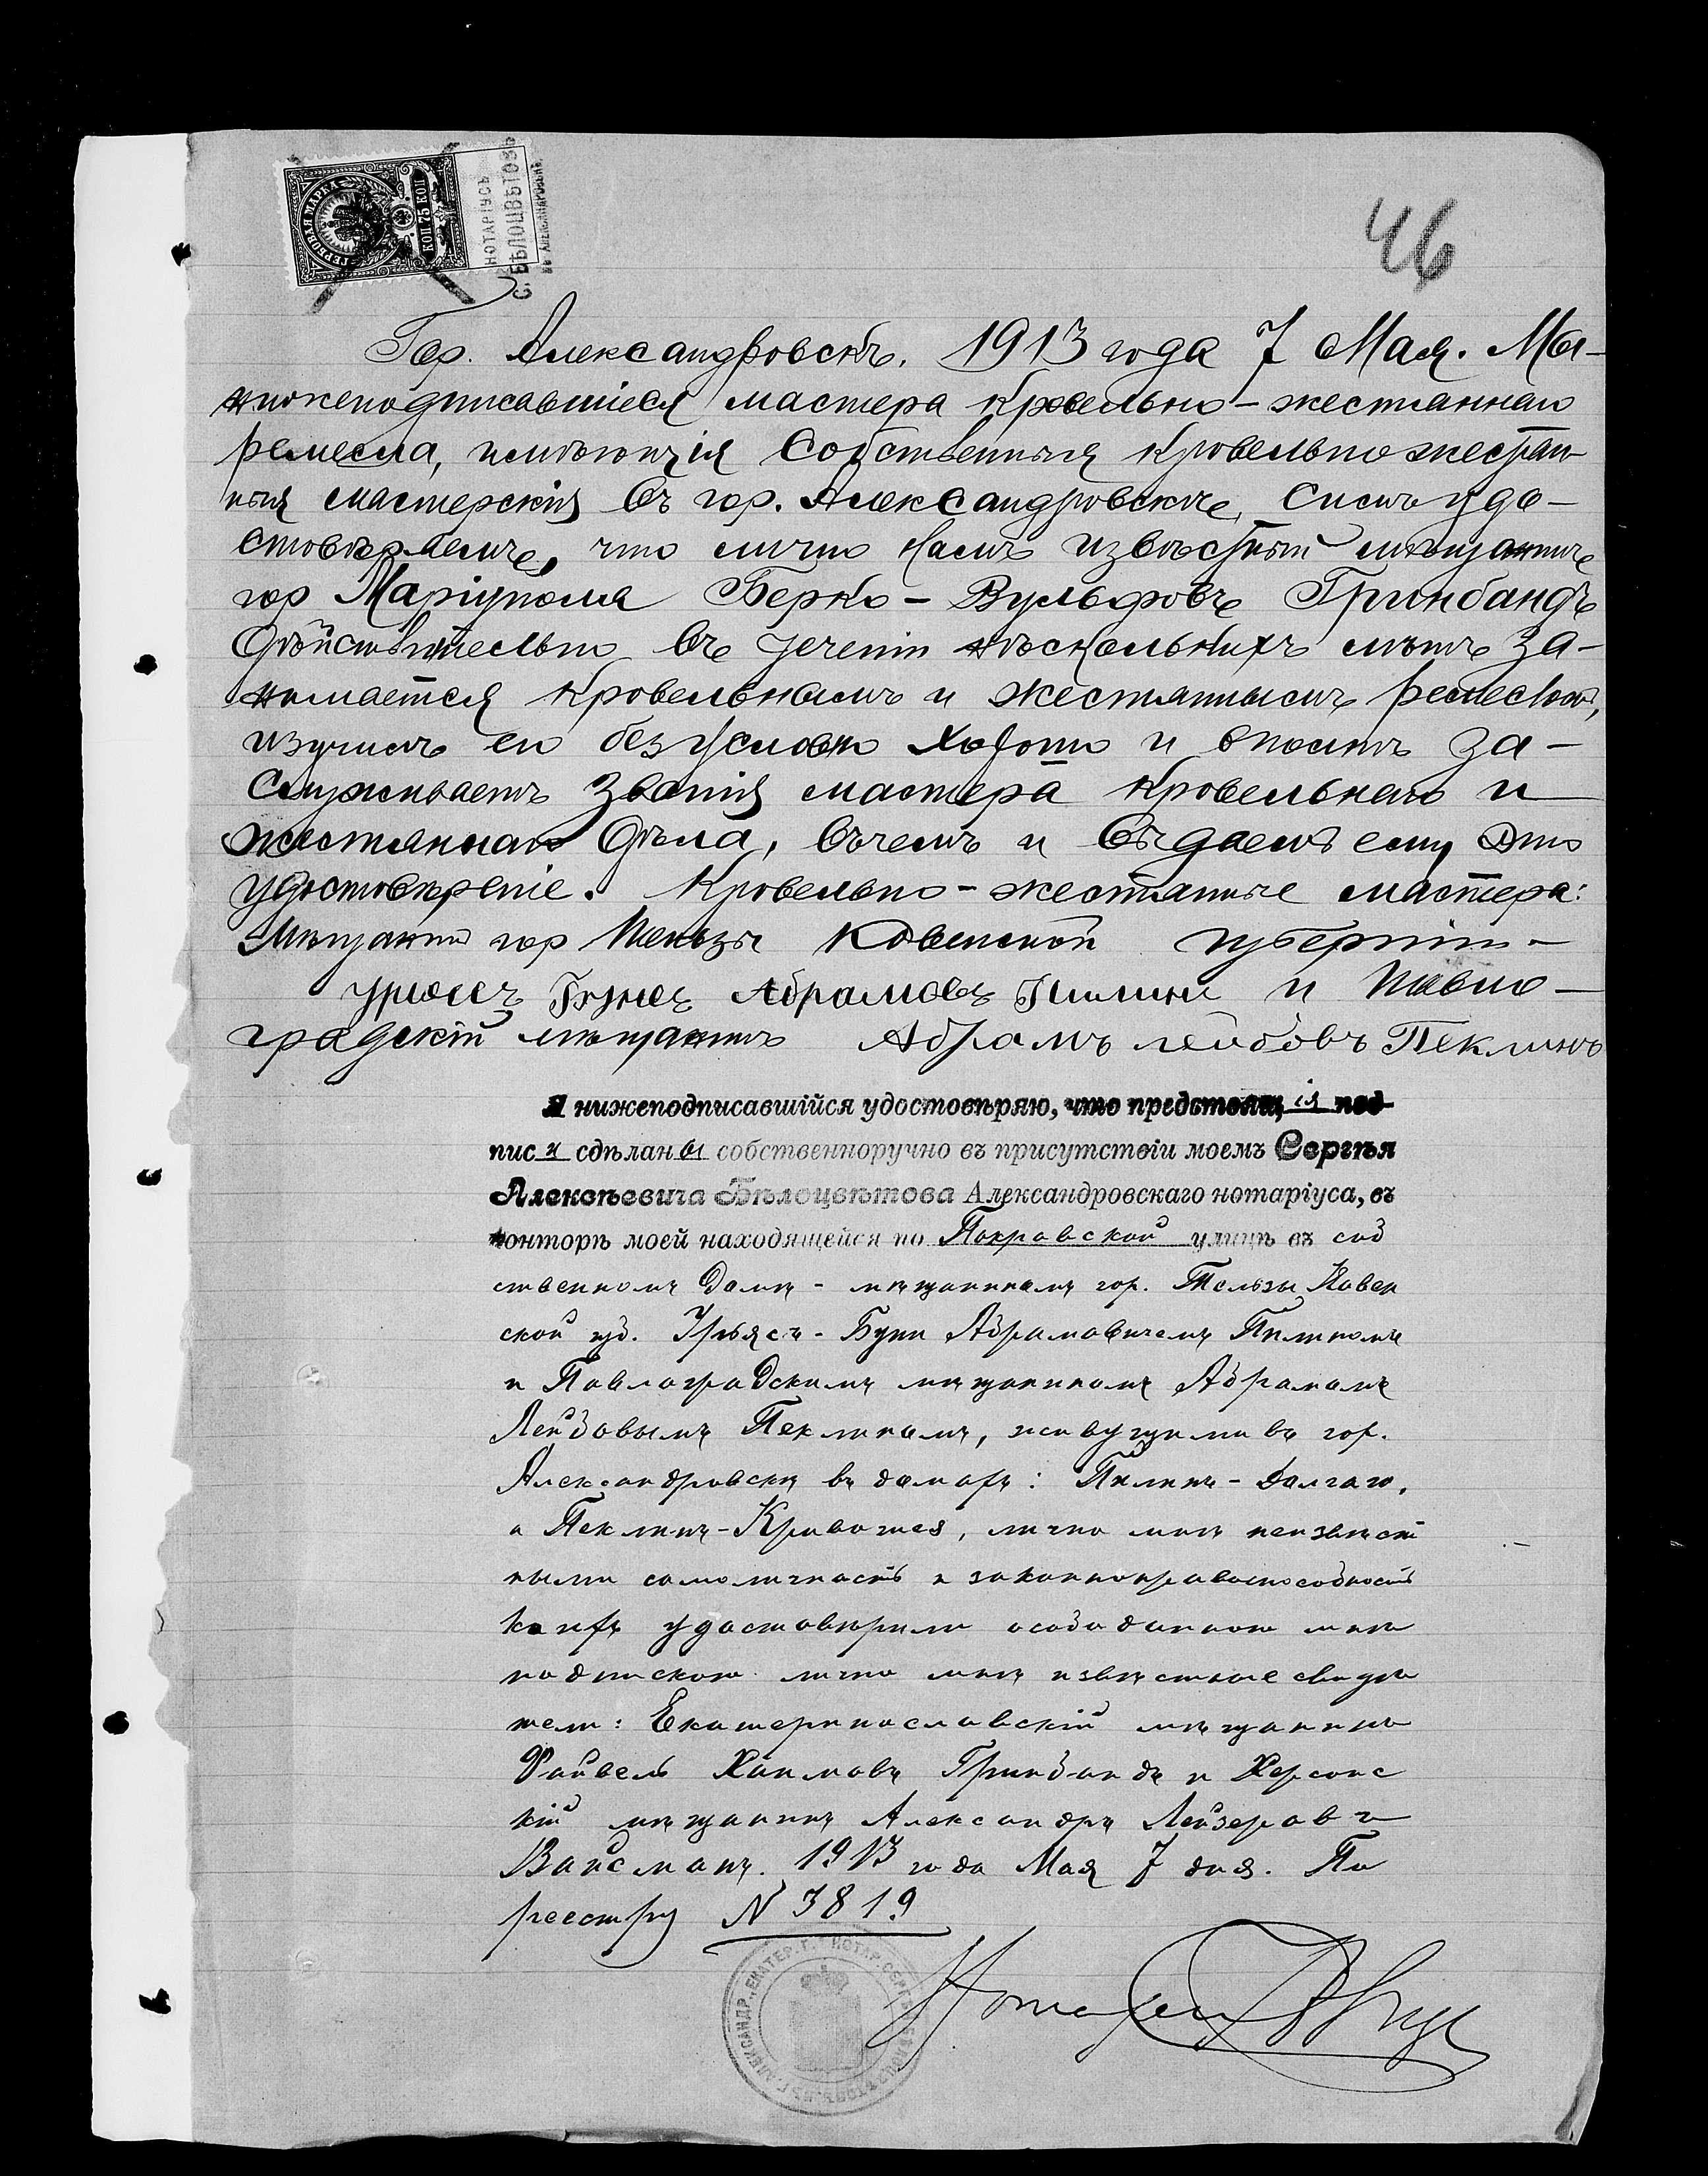 ГЕРБОВАЯ МАРКА
КОП 75 КОП
НОТАРІУСЪ
С. БѢЛОЦВѢТОВЪ
46
Гор. Александровскъ. 1913 года 7 Мая. Мы-
нижеподписавшіеся мастера кровельно-жестяннаго
ремесла, имѣющія собственныя кровельно жестян-
ныя мастерскія въ гор. Александровскѣ, симъ удо-
стовѣряемъ, что лично намъ извѣстный мѣщанинъ
гор Маріуполя Берко-Вульфовъ Гринбандъ
дѣйствительно въ теченіи нѣсколькихъ лѣтъ за-
нимается кровельнымъ и жестяннымъ ремесломъ,
изучилъ его безусловно хорошо и вполнѣ за-
служиваетъ званія мастера кровельнаго и
жестяннаго дѣла, въ чемъ и выдаемъ ему это
удостовѣреніе. Кровельно-жестянные мастера:
Мѣщанинъ гор Тельзы Ковенской губерніи-
Абрамовъ Пилинъ и Павло-
градскій мѣщанинъ Абрамъ Лейбовъ Пеклинъ
Я нижеподписавшійся удостовѣряю, что предстоящія под-
писи сдѣланы собственноручно въ присутствіи моемъ Сергѣя
Алексѣевича Бѣлоцвѣтова Александровскаго нотаріуса, въ
конторѣ моей находящейся по Покровской улицѣ въ соб
ственномъ домѣ - мѣщаниномъ гор. Тельзы Ковен
ской губ. Урьясъ-Буни Абрамовичемъ Пилиномъ
и Павлоградскимъ мѣщаниномъ Абрамомъ
Лейбовымъ Пеклинымъ, живущими въ гор.
Александровскѣ въ домахъ: Пилинъ-Долгаго,
а Пеклинъ-Кривошея, лично мнѣ неизвѣст
ными самоличность и законноправоспособность
коихъ удостовѣрили особо данною мнѣ
подпискою лично мнѣ извѣстные свидѣ
тели: Екатеринославскій мѣщанинъ
Файвель Хаимовъ Гринбандъ и Херсонс
кій мѣщанинъ Александръ Лейзеровъ
Вайсманъ. 1913 года Мая 7 дня. По
реестру N 3819
Нотаріусъ